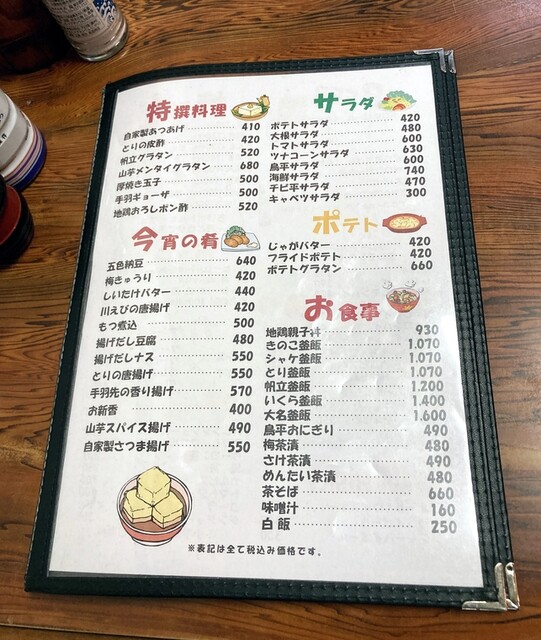 特撰料理
自家製あつあげ 410
とりの皮酢 420
帆立グラタン 520
山芋メンタイグラタン 680
厚焼き玉子 500
手羽ギョーザ 500
地鶏おろしポン酢 520
今宵の肴
五色納豆 640
梅きゅうり 420
しいたけバター 440
川えびの唐揚げ 420
もつ煮込 500
揚げだし豆腐 480
揚げだしナス 550
とりの唐揚げ 550
手羽先の香り揚げ 570
お新香 400
山芋スパイス揚げ 490
自家製さつま揚げ 550
サラダ
ポテトサラダ 420
大根サラダ 480
トマトサラダ 600
ツナコーンサラダ 630
鳥平サラダ 600
海鮮サラダ 740
チビ平サラダ 470
キャベツサラダ 300
ポテト
じゃがバター 420
フライドポテト 420
ポテトグラタン 660
お食事
地鶏親子丼 930
きのこ釜飯 1,070
シャケ釜飯 1,070
とり釜飯 1,070
帆立釜飯 1,200
いくら釜飯 1,400
大名釜飯 1,600
鳥平おにぎり 490
梅茶漬 480
さけ茶漬 490
めんたい茶漬 480
茶そば 660
味噌汁 160
白飯 250
※表記は全て税込み価格です。